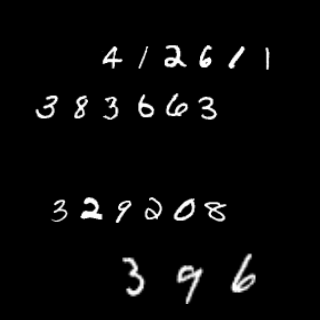 412611
383663
329208
396